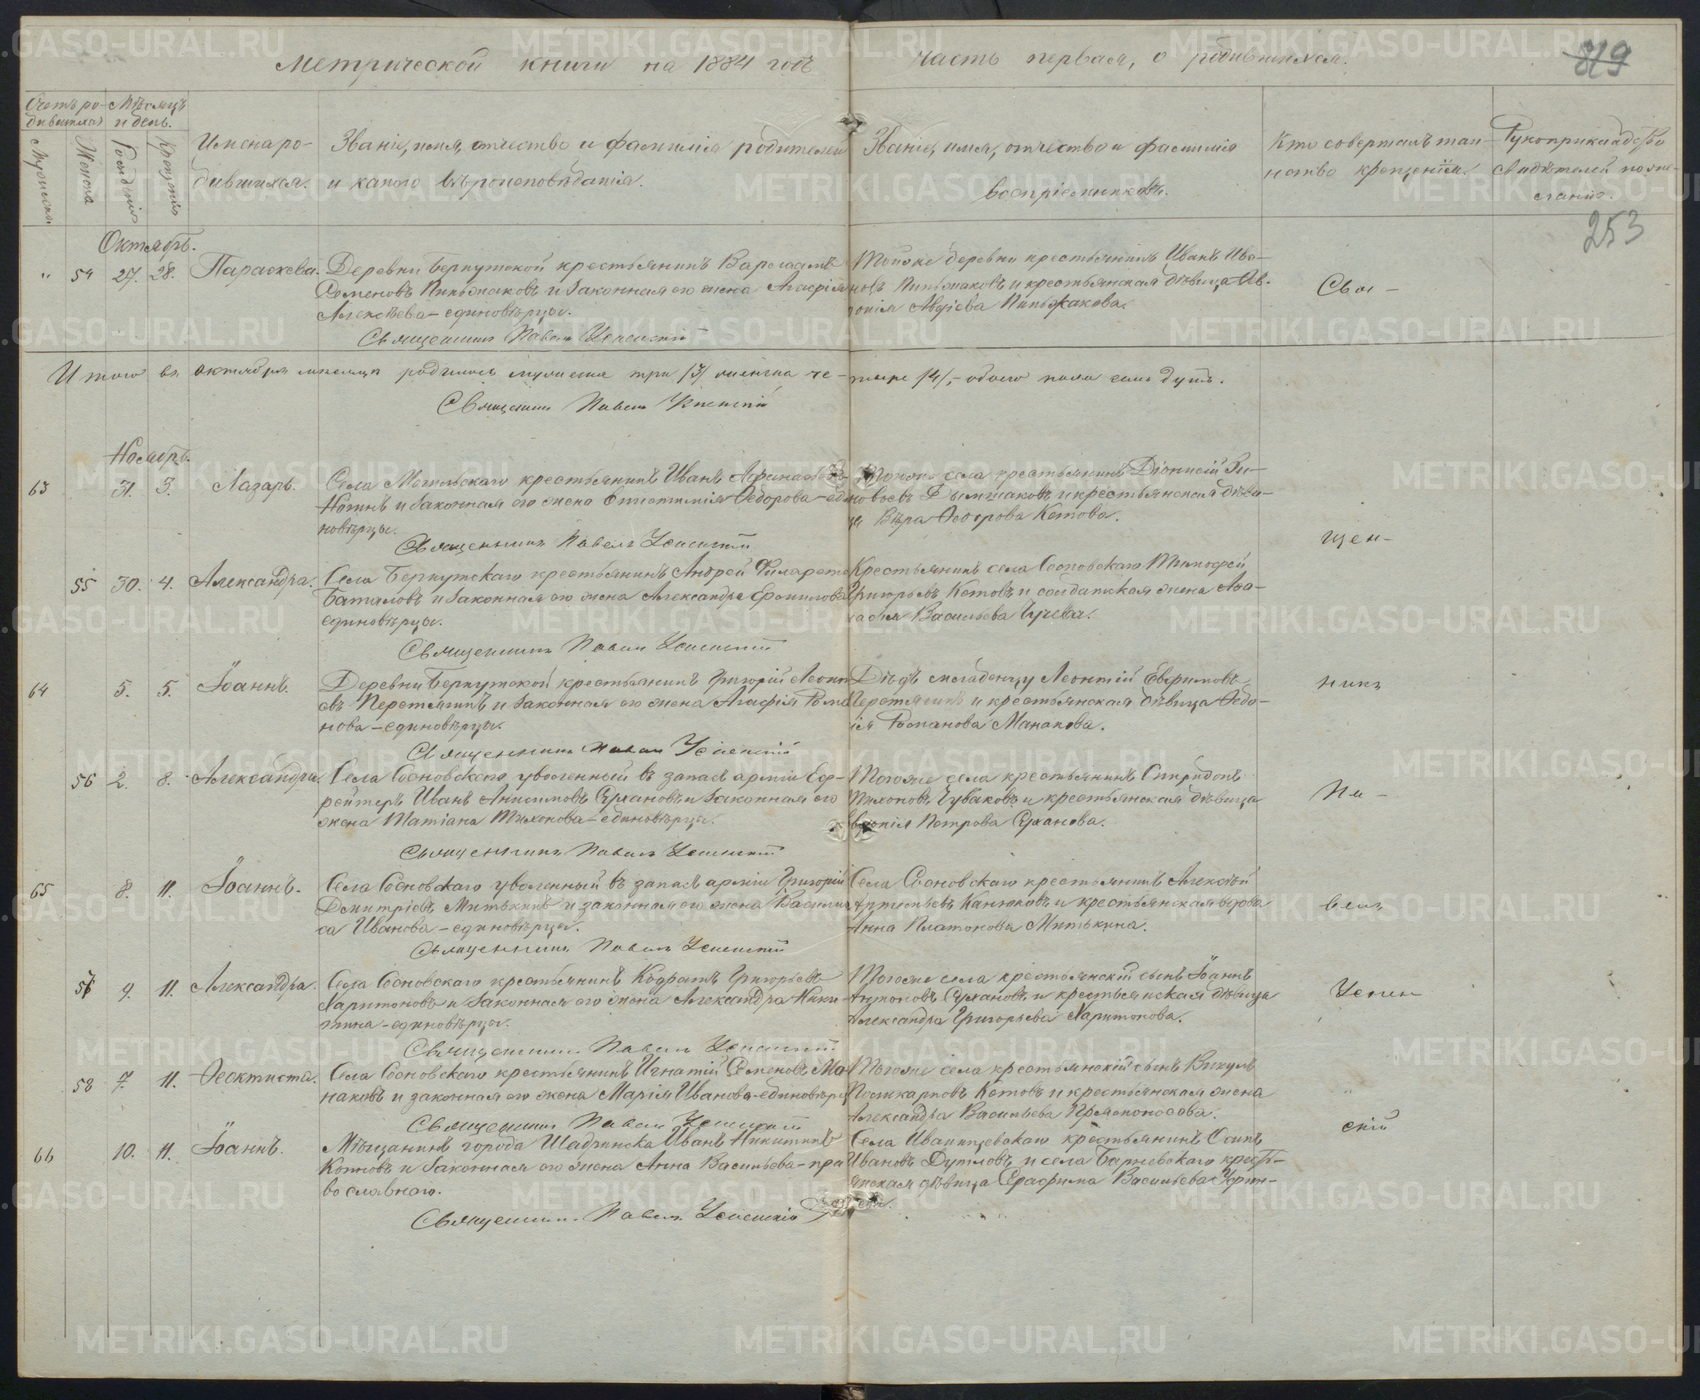 Метрической книги на 1884 годъ
часть первая, о родившихся.
819
253
Счетъ ро-
дившихся
Мѣсяцъ
и день.
Мужеска
Женска
Рожденія
Крещенія
Имена ро-
дившихся.
Званіе, имя, отчество и фамилія родителей
и какого вѣроисповѣданія.
Званіе, имя, отчество и фамилія
воспріемниковъ.
Кто совершалъ таи-
нство крещенія.
Рукоприкладство
свидѣтелей по же-
ланію.
Октябрь.
" 54 27. 28. Параскева.
Деревни Беркутской крестьянинъ Варлаамъ
Семеновъ Пиньжаковъ и законная его жена Агафія
Алексѣева - единовѣрцы.
Священникъ Павелъ Успенскій
Тойже деревни крестьянинъ Иванъ Ива-
новъ Пиньжаковъ и крестьянская дѣвица
Авдіева Пиньжакова.
Свя-
Итого въ октябрѣ мѣсяцѣ родилось мужеска три /3/ женска че-
тыре /4/, - обоего пола семь душъ.
Священникъ Павелъ Успенскій
Ноябрь.
63 31. 3. Лазарь.
Села крестьянинъ Иванъ
и законная его жена Ѳедорова - еди-
новѣрцы.
Священникъ Павелъ Успенскій
Тогоже села крестьянинъ Діонисій Зи-
новьевъ и крестьянская дѣви-
ца Вѣра Ѳедорова Котова.
щен-
55 30. 4. Александра.
Села Беркутскаго крестьянинъ Андрей Филарето
Баталовъ и законная его жена Александра
единовѣрцы.
Священникъ Павелъ Успенскій
Крестьянинъ села Сосновскаго Тимофей
Григорьевъ Котовъ и солдатская жена
Васильева
64 5. 5. Іоаннъ.
Деревни Беркутской крестьянинъ Григорій Леонть
евъ Перетягинъ и законная его жена Агафія Рома
нова - единовѣрцы.
Священникъ Павелъ Успенскій
Дѣдъ младенцу Леонтій Евфимовъ
Перетягинъ и крестьянская дѣвица Ѳедо-
Романова Манакова.
никъ
56 2. 8. Александра.
Села Сосновскаго уволенный въ запасъ арміи Еф-
рейторъ Иванъ Анисимовъ Сухановъ и законная его
жена Татіана Тихонова - единовѣрцы.
Священникъ Павелъ Успенскій
Тогоже села крестьянинъ Спиридонъ
Тихоновъ и крестьянская дѣвица
Петрова Суханова.
Па-
65 8. 11. Іоаннъ.
Села Сосновскаго уволенный въ запасъ арміи Григорій
Дмитріевъ Митькинъ и законная его жена Василис
са Иванова - единовѣрцы.
Священникъ Павелъ Успенскій
Села Сосновскаго крестьянинъ Алексѣй
и крестьянская вдова
Анна Платонова Митькина.
велъ
57 9. 11. Александра.
Села Сосновскаго крестьянинъ Кодратъ Григорьевъ
Харитоновъ и законная его жена Александра Ники-
тина - единовѣрцы.
Священникъ Павелъ Успенскій
Тогоже села крестьянскій сынъ Іоаннъ
Антоновъ Сухановъ и крестьянская дѣвица
Александра Григорьева Харитонова.
Успен
58 7. 11. Ѳеоктиста.
Села Сосновскаго крестьянинъ Игнатій Семеновъ Ма-
наковъ и законная его жена Марія Иванова - единовѣрцы
Священникъ Павелъ Успенскій
Тогоже села крестьянскій сынъ Викулъ
Поликарповъ Котовъ и крестьянская жена
Александра Васильева
скій
66 10. 11. Іоаннъ.
Мѣщанинъ города Шадринска Иванъ Никитинъ
и законная его жена Анна Васильева - пра
вославнаго.
Священникъ Павелъ Успенскій
Села Иванищевскаго крестьянинъ Осипъ
Ивановъ и села Барневскаго крестъ-
янская дѣвица Серафима Васильева
METRIKI.GASO-URAL.RU